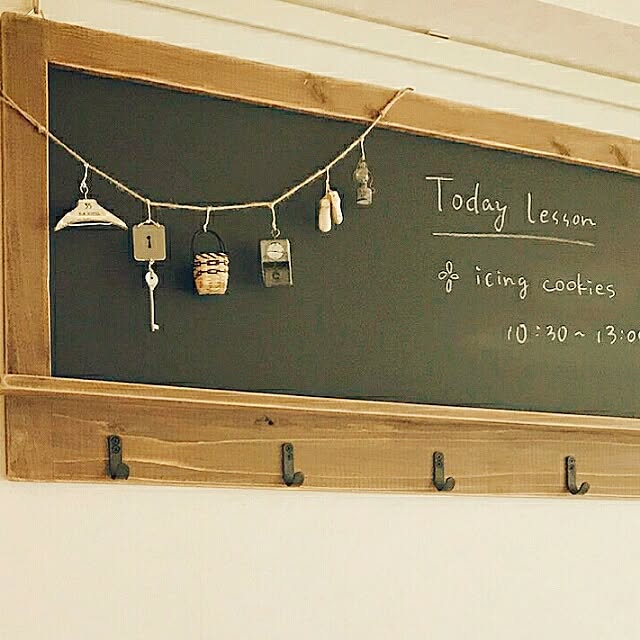 1
Today lesson
icing cookies
10:30~13:00